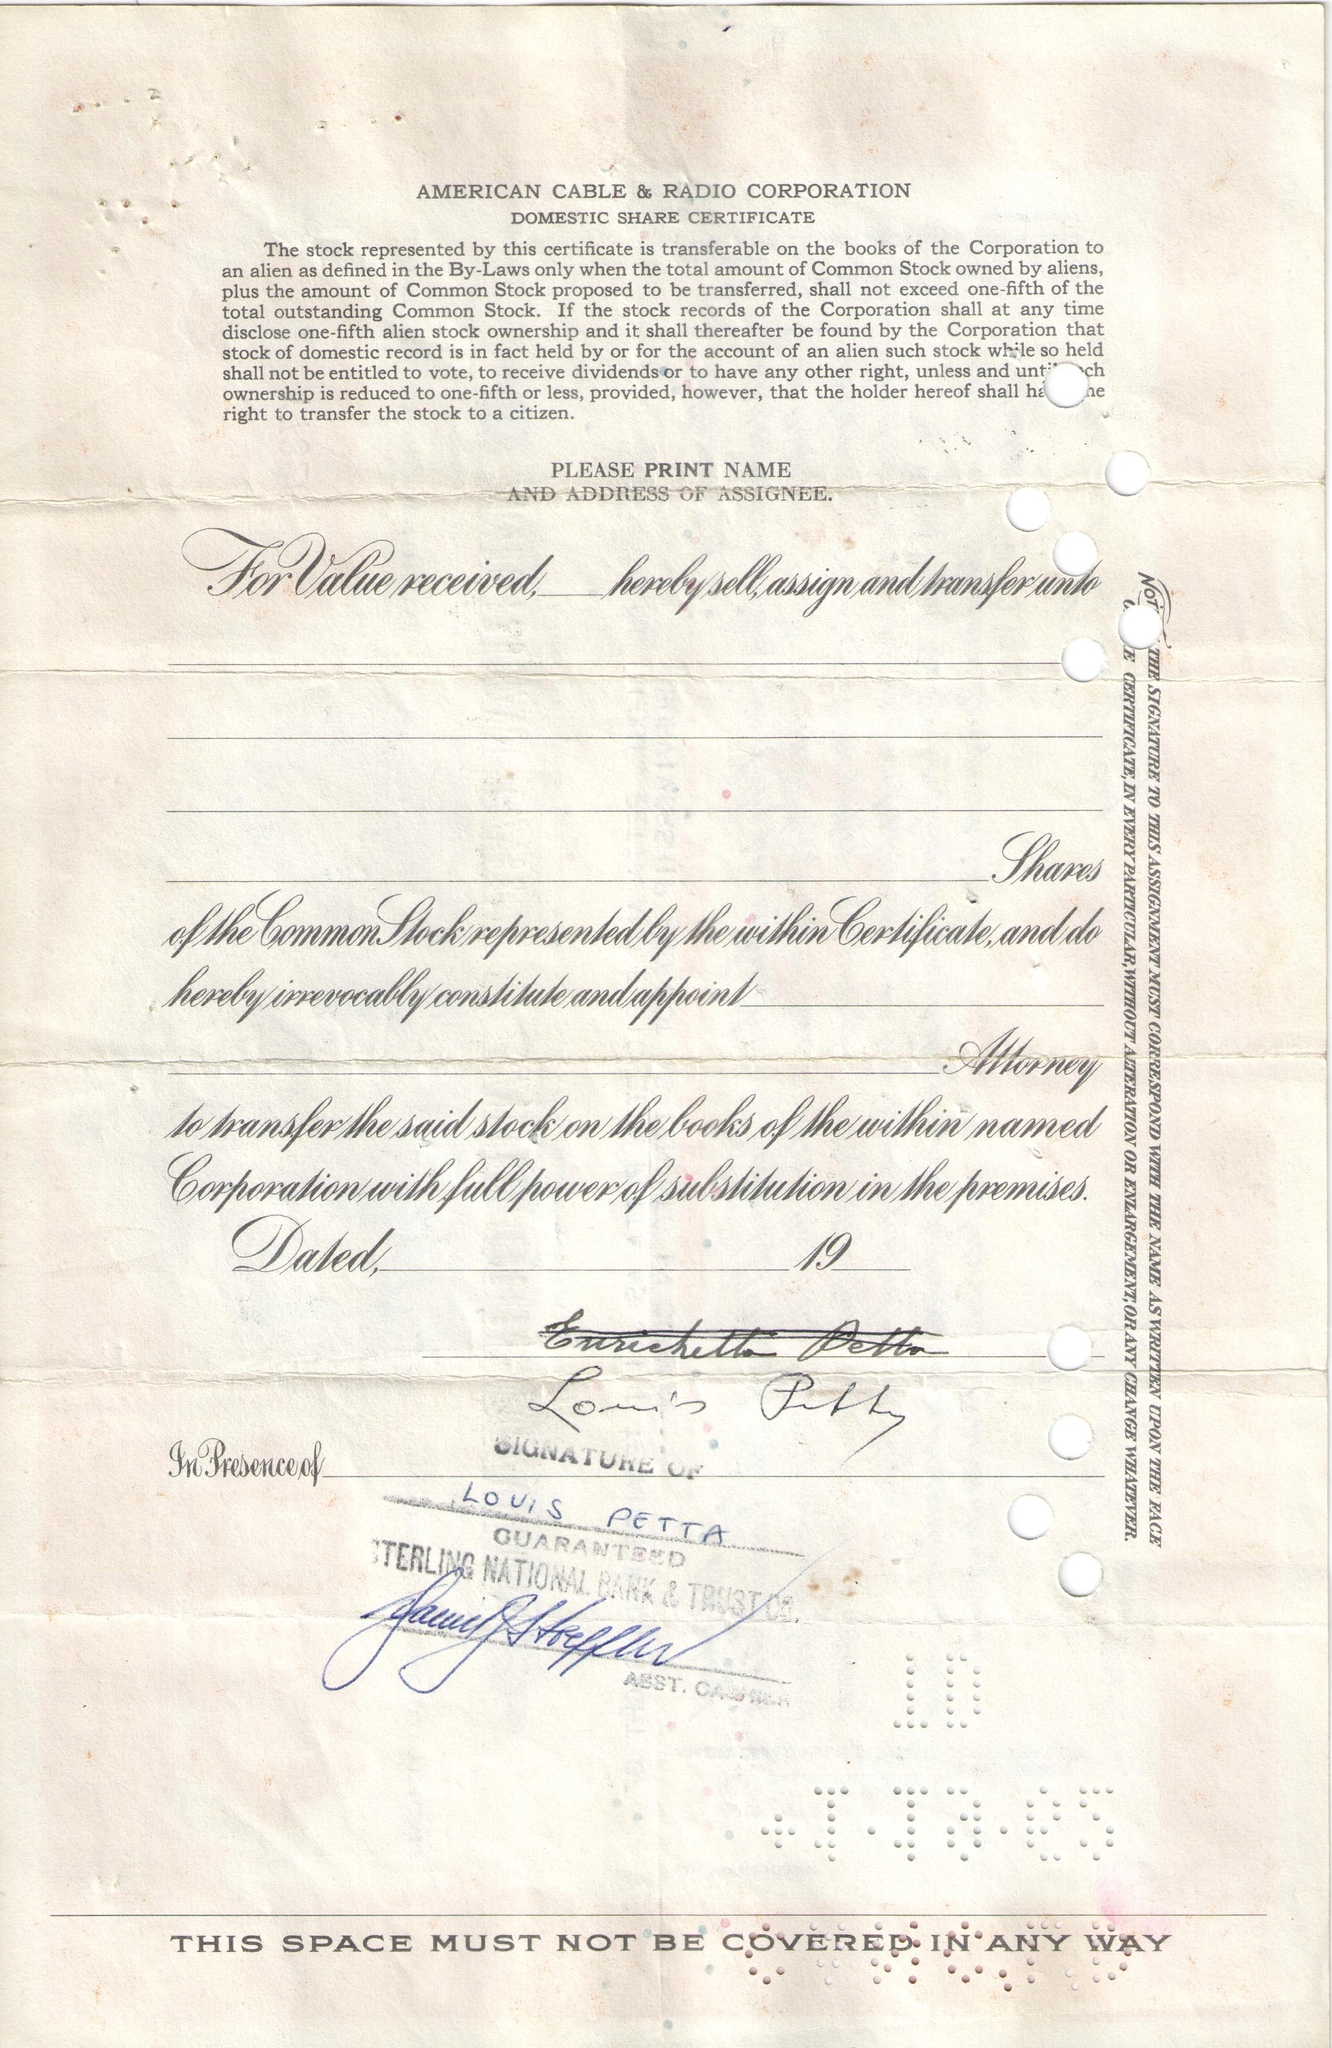 AMERICAN CABLE & RADIO CORPORATION
DOMESTIC SHARE CERTIFICATE
The stock represented by this certificate is transferable on the books of the Corporation to
an alien as defined in the By-Laws only when the total amount of Common Stock owned by aliens,
plus the amount of Common Stock proposed to be transferred, shall not exceed one-fifth of the
total outstanding Common Stock. If the stock records of the Corporation shall at any time
disclose one-fifth alien stock ownership and it shall thereafter be found by the Corporation that
stock of domestic record is in fact held by or for the account of an alien such stock while so held
shall not be entitled to vote, to receive dividends or to have any other right, unless and until such
ownership is reduced to one-fifth or less, provided, however, that the holder hereof shall have the
right to transfer the stock to a citizen.
PLEASE PRINT NAME
AND ADDRESS OF ASSIGNEE.
For Value received, hereby sell, assign and transfer unto
Shares
of the Common Stock represented by the within Certificate, and do
hereby irrevocably constitute and appoint
Attorney
to transfer the said stock on the books of the within named
Corporation with full power of substitution in the premises.
Dated, 19
Enrichetta Petta
Louis Petta
In Presence of
SIGNATURE OF
LOUIS PETTA
GUARANTEED
STERLING NATIONAL BANK & TRUST CO.
ASST. CASHIER
THIS SPACE MUST NOT BE COVERED IN ANY WAY
THE SIGNATURE TO THIS ASSIGNMENT MUST CORRESPOND WITH THE NAME AS WRITTEN UPON THE FACE
CERTIFICATE, IN EVERY PARTICULAR, WITHOUT ALTERATION OR ENLARGEMENT, OR ANY CHANGE WHATEVER.